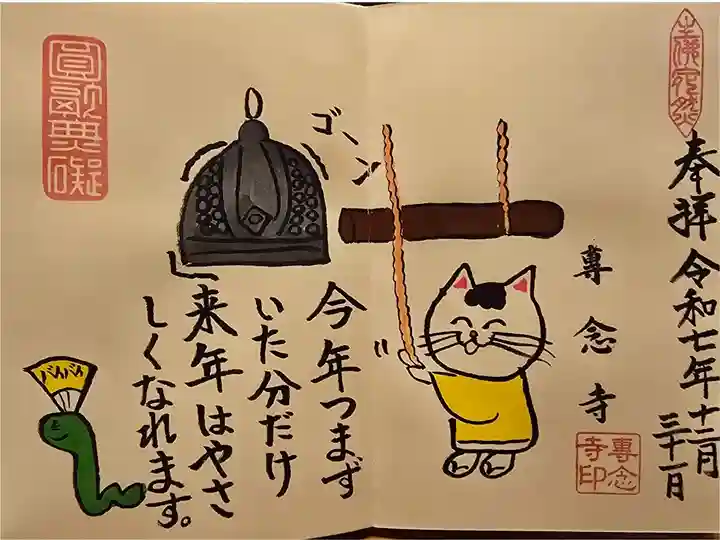 生佛宛然
奉拝 令和七年十二月
三十一日
專念寺
專念
寺印
ゴーン
今年つまず
いた分だけ
来年はやさ
しくなれます。
圓融無礙